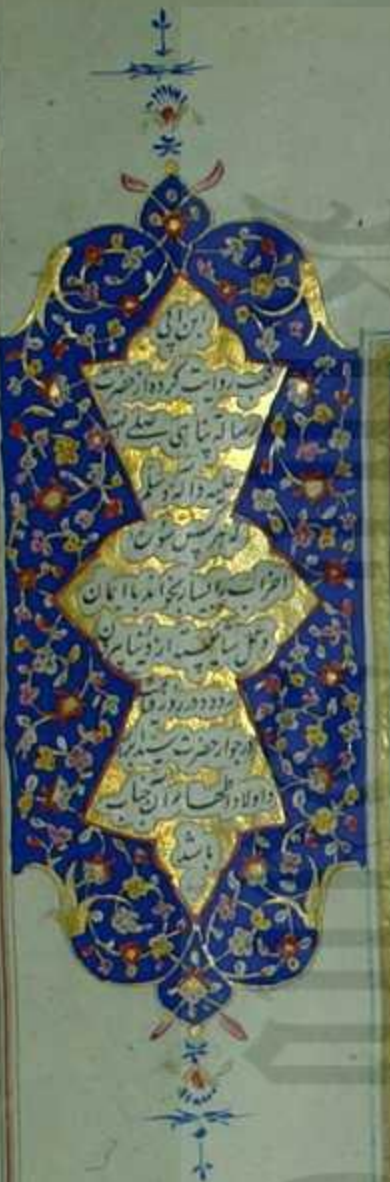 ابن ابی
کعب روایت کرده از حضرت
رسالة پناهی صلی الله
علیه و آله وسلم
که هر کس سورۀ
احزاب را بسیار بخواند با ایمان
و عمل شایسته از دنیا بیرون
رود و در روز قیامت
در جوار حضرت سید ابرار
و اولاد اطهار آن جناب
باشد